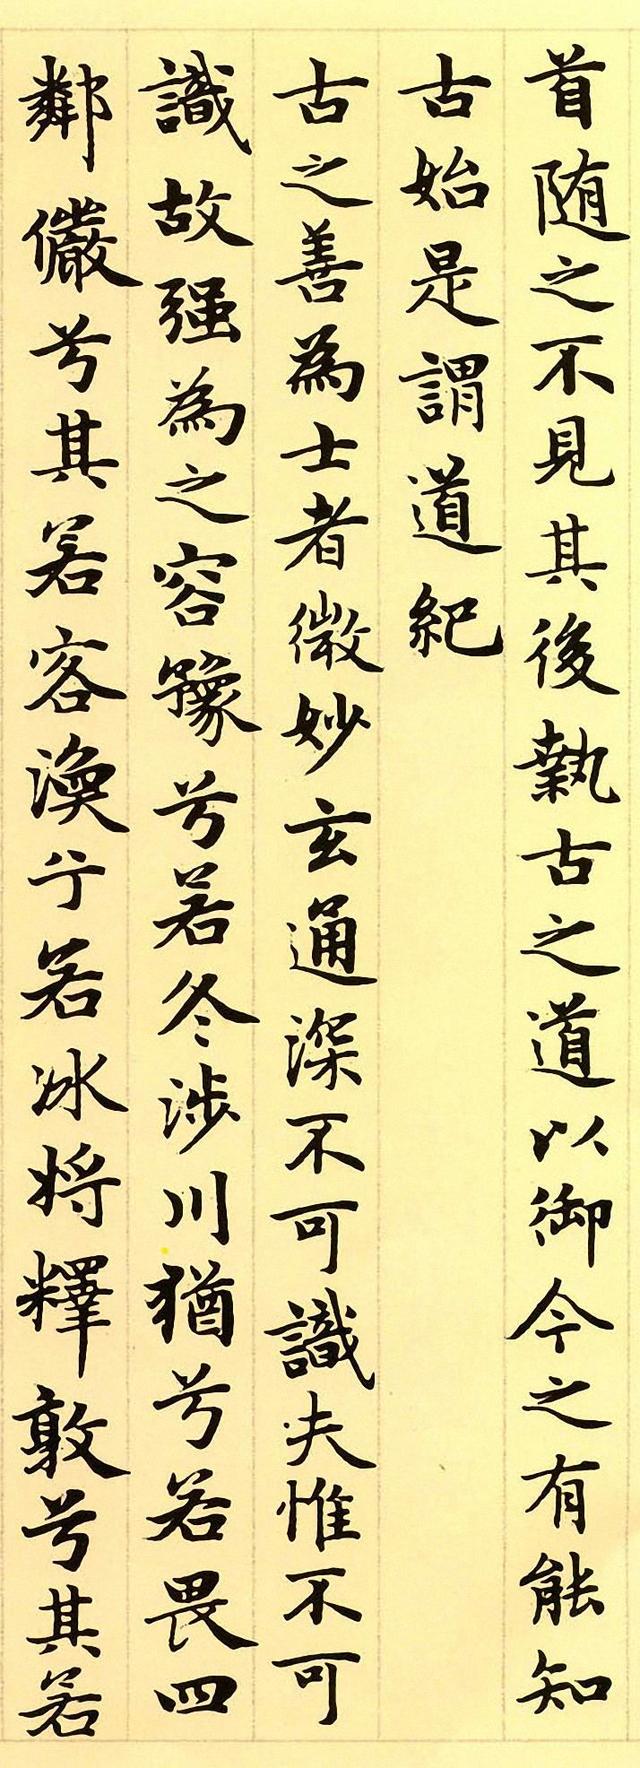 首随之不見其後執古之道以御今之有能知
古始是謂道紀
古之善為士者微妙玄通深不可識夫惟不可
識故强為之容豫兮若冬涉川猶兮若畏四
鄰儼兮其若客渙兮若冰将釋敦兮其若